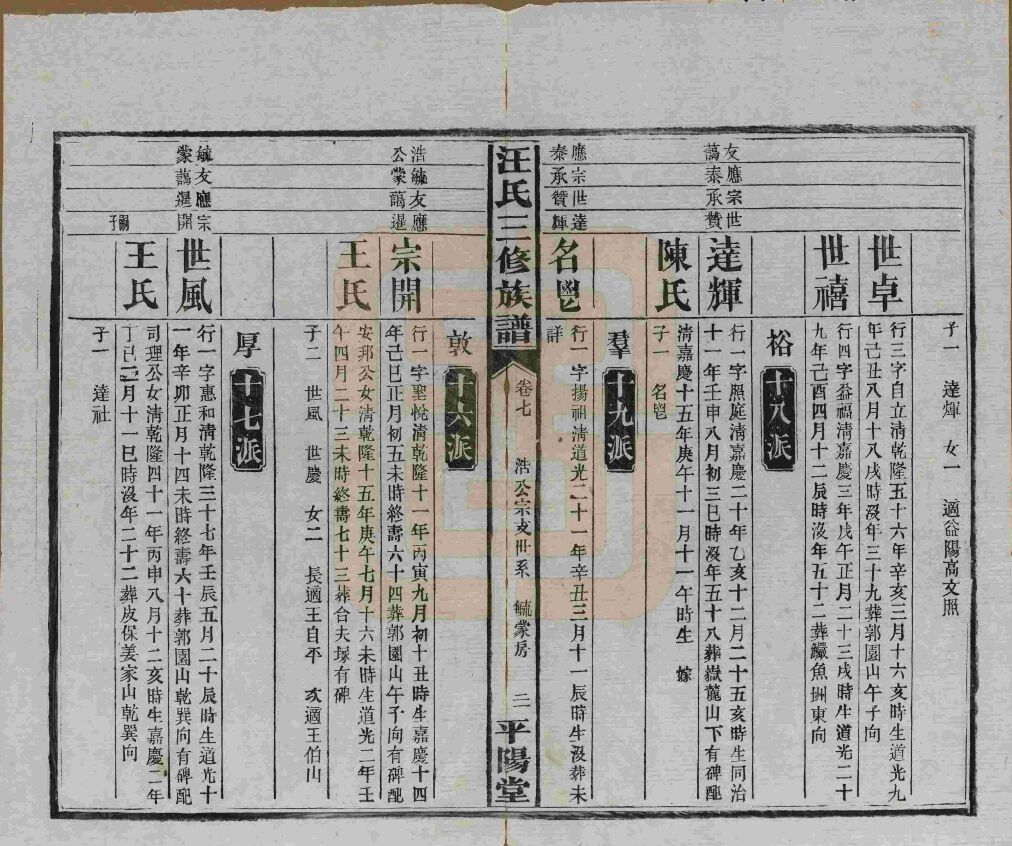 子一 達煇 女一 適益陽高文照
世卓
行三字自立清乾隆五十六年辛亥三月十六亥時生道光九
年己丑八月十八戌時沒年三十九葬郭園山午子向
世禧
行四字益福清嘉慶三年戊午正月二十三戌時生道光二十
九年己酉四月十二辰時沒年五十二葬鱺魚洲東向
裕 十八派
友應宗世
藹泰承贊
達輝
行一字照庭清嘉慶二十年乙亥十二月二十五亥時生同治
十一年壬申八月初三巳時沒年五十八葬嶽麓山下有碑配
陳氏
清嘉慶十五年庚午十一月十一午時生 嫁
子一 名鬯
羣 十九派
應宗世達
泰承贊輝
名鬯
行一字揚祖清道光二十一年辛丑三月十一辰時生沒葬未
詳
汪氏三修族譜 卷七 浩公宗支世系 毓蒙房 三 平陽堂
敦 十六派
浩毓友應
公蒙藹暹
宗開
行一字聖悅清乾隆十一年丙寅九月初十丑時生嘉慶十四
年己巳正月初五未時終壽六十四葬郭園山午子向有碑配
王氏
安邦公女清乾隆十五年庚午七月十六未時生道光二年壬
午四月二十三未時終壽七十三葬合夫塚有碑
子二 世風 世慶 女二 長適王自平 次適王伯山
厚 十七派
毓友應宗
蒙藹暹開
世風
行一字惠和清乾隆三十七年壬辰五月二十辰時生道光十
一年辛卯正月十四未時終壽六十葬郭園山乾巽向有碑配
嗣子
王氏
司理公女清乾隆四十一年丙申八月十二亥時生嘉慶二年
丁巳三月十一巳時沒年二十二葬皮保姜家山乾巽向
子一 達社